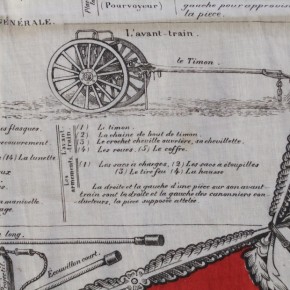 Pourvoyeur
gauche pour approvi
la pièce.
GÉNÉRALE.
L'avant-train.
le Timon.
es flasques.
ecouvrement
(14) La lunette
manivelle
age.
L'avant-train.
(1) Le timon.
(2) La chaine de bout de timon.
(3) Le crochet cheville ouvrière, sa chevillette.
(4) Les roues. (5) Le coffre.
Les armements.
(1) Les sacs à charges, (2) Les sacs à étoupilles
(3) Le tire feu (4) La hausse
La droite et la gauche d'une pièce sur son avant-
train sont la droite et la gauche des canonniers con-
ducteurs, la pièce supposée attelée
long.
Ecouvillon court.